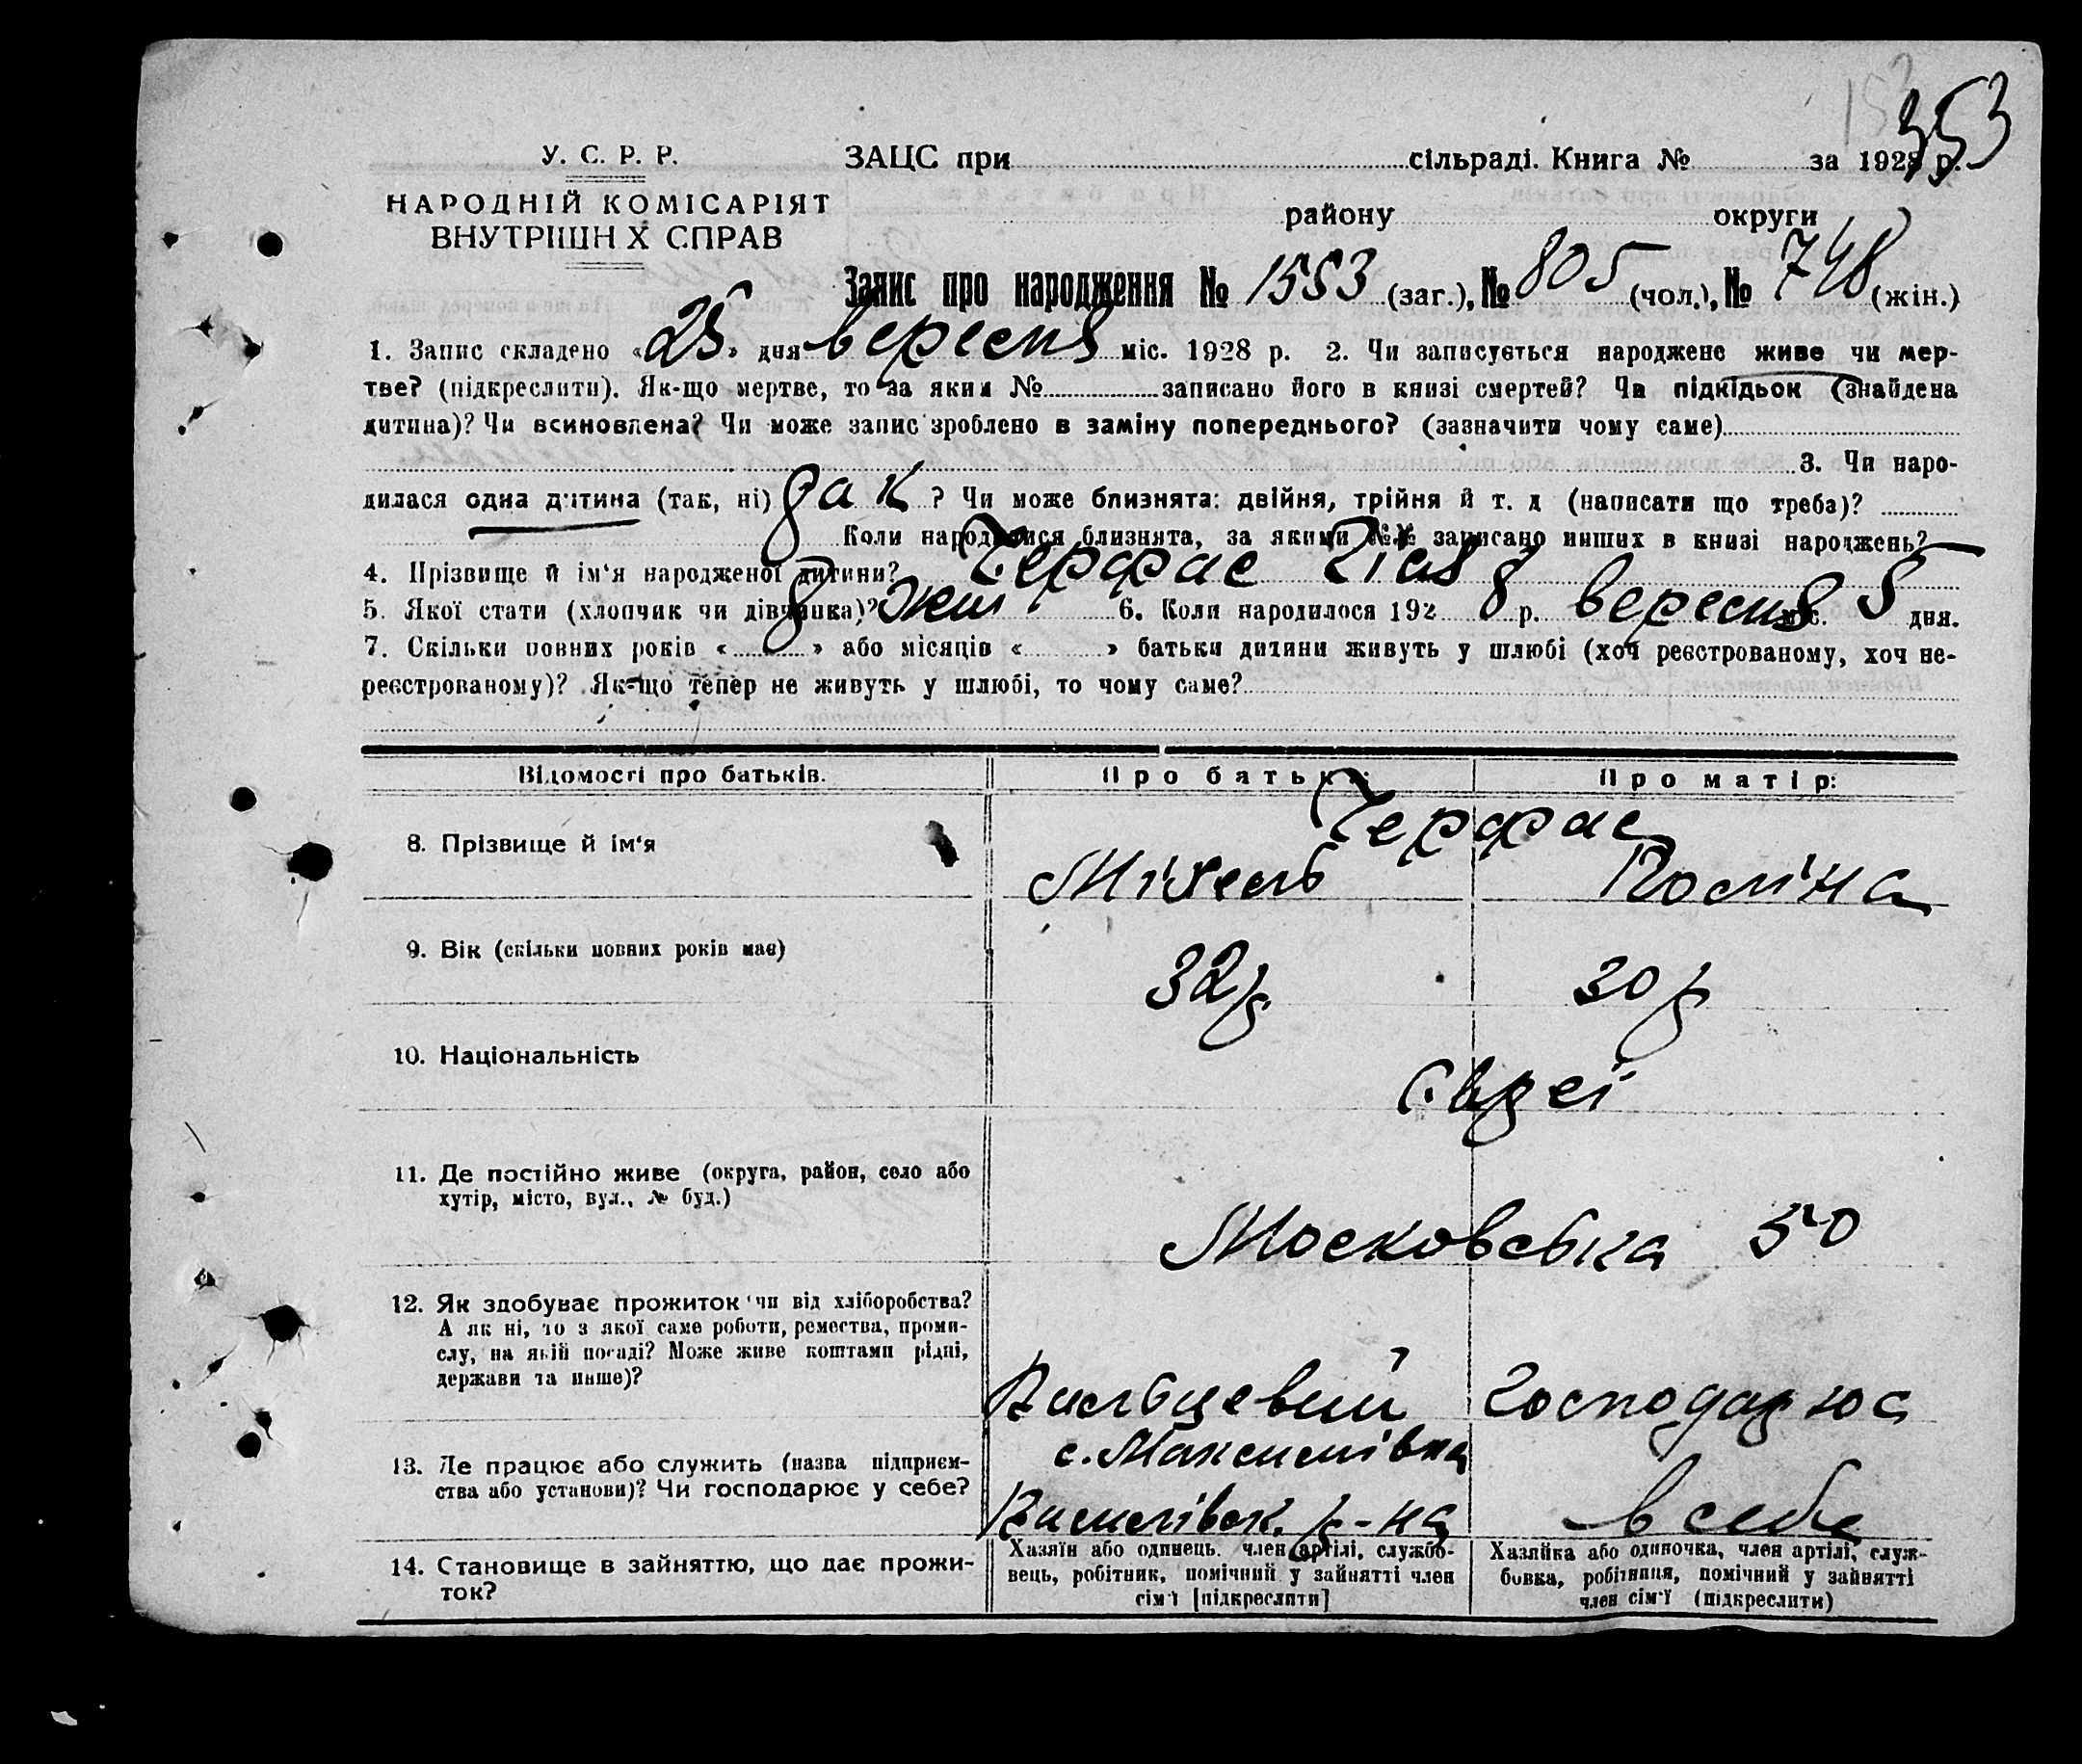 353
У. С. Р. Р.
ЗАЦС при сільраді. Книга № за 1928 р.
НАРОДНІЙ КОМІСАРІЯТ
ВНУТРІШН Х СПРАВ
району округи
Запис про народження № 1553 (заг.), № 805 (чол.), № 748 (жін.)
1. Запис складено «25» дня вересня міс. 1928 р. 2. Чи записується народжене живе чи мер-
тве? (підкреслити). Як-що мертве, то за яким № записано його в книзі смертей? Чи підкідьок (знайдена
дитина)? Чи всиновлена? Чи може запис зроблено в заміну попереднього? (зазначити чому саме)
3. Чи наро-
дилася одна дитина (так, ні) так ? Чи може близнята: двійня, трійня й т. д (написати що треба)?
Коли народилися близнята, за якими №№ записано инших в книзі народжень?
4. Прізвище й ім'я народженої дитини? Черфас
5. Якої стати (хлопчик чи дівчинка)? жін 6. Коли народилося 1928 р. вересня міс. 5 дня.
7. Скільки повних років « 8 » або місяців « » батьки дитини живуть у шлюбі (хоч реєстрованому, хоч не-
реєстрованому)? Як-що тепер не живуть у шлюбі, то чому саме?
Відомості про батьків.
Про батька:
Про матір:
8. Прізвище й ім'я
Черфас
Міхель
Поліна
9. Вік (скільки повних років має)
32 р
30 р
10. Національність
Євреї
11. Де постійно живе (округа, район, село або
хутір, місто, вул., № буд.)
Московська 50
12. Як здобуває прожиток чи від хліборобства?
А як ні, то з якої саме роботи, ремества, проми-
слу, на якій посаді? Може живе коштами рідні,
держави та инше)?
Господарює
13. Де працює або служить (назва підприєм-
ства або установи)? Чи господарює у себе?
с. Максимівка
р-на
в себе
14. Становище в зайняттю, що дає прожи-
ток?
Хазяїн або одинець, член артілі, службо-
вець, робітник, помічний у зайнятті член
сім'ї [підкреслити]
Хазяйка або одиночка, член артілі, служ-
бовка, робітниця, помічний у зайнятті
член сім'ї (підкреслити)